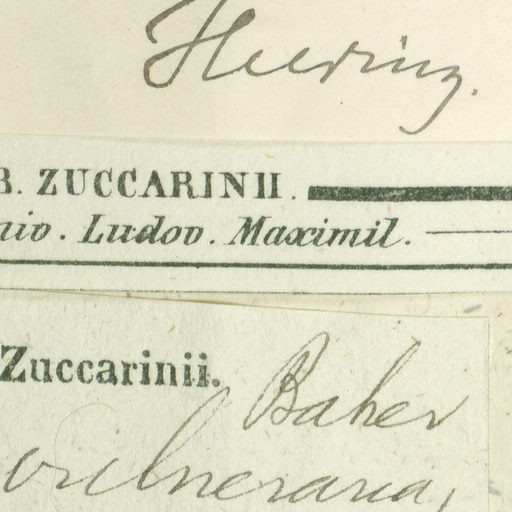 Heering.
B. ZUCCARINII.
niv. Ludov. Maximil.
Zuccarinii.
Baker
vulneraria,